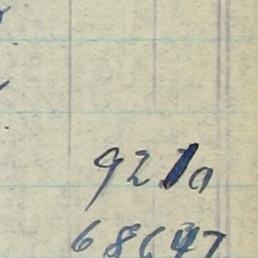 9210
68647